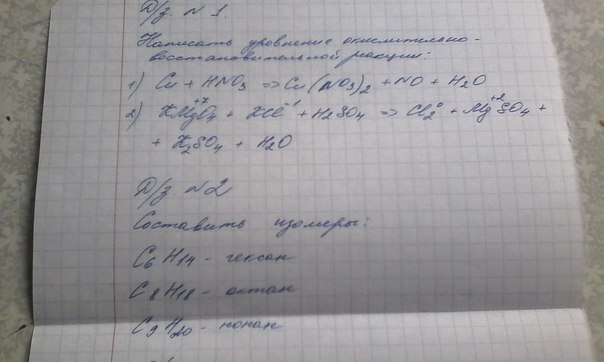 Д/з. №1.
Написать уровнение окислительно-
восстановительной реакции:
1) Cu + HNO3 => Cu(NO3)2 + NO + H2O
2) KMgO4 +7 + KCl -1 + H2SO4 => Cl2 0 + Mg +2 SO4 +
+ K2SO4 + H2O
Д/з. №2
Составить изомеры:
C6H14 - гексан
C8H18 - октан
C9H20 - нонан